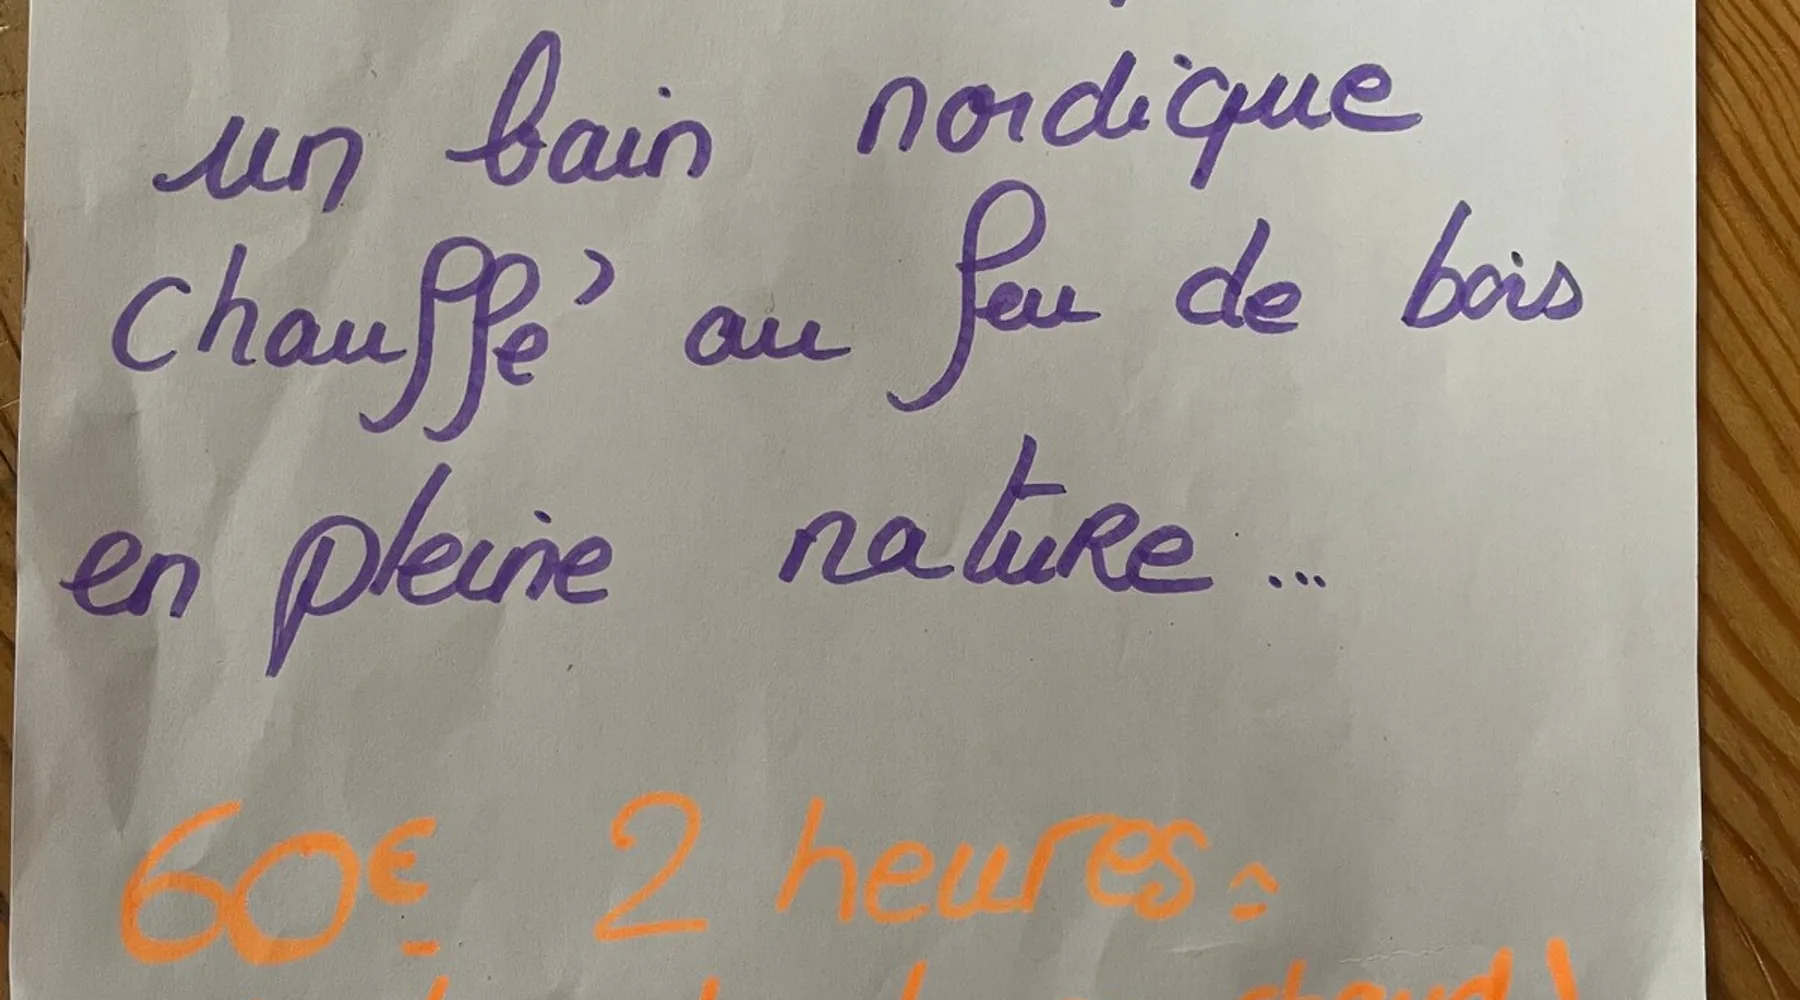 un bain nordique
chauffé au feu de bois
en pleine nature...
60€ 2 heures